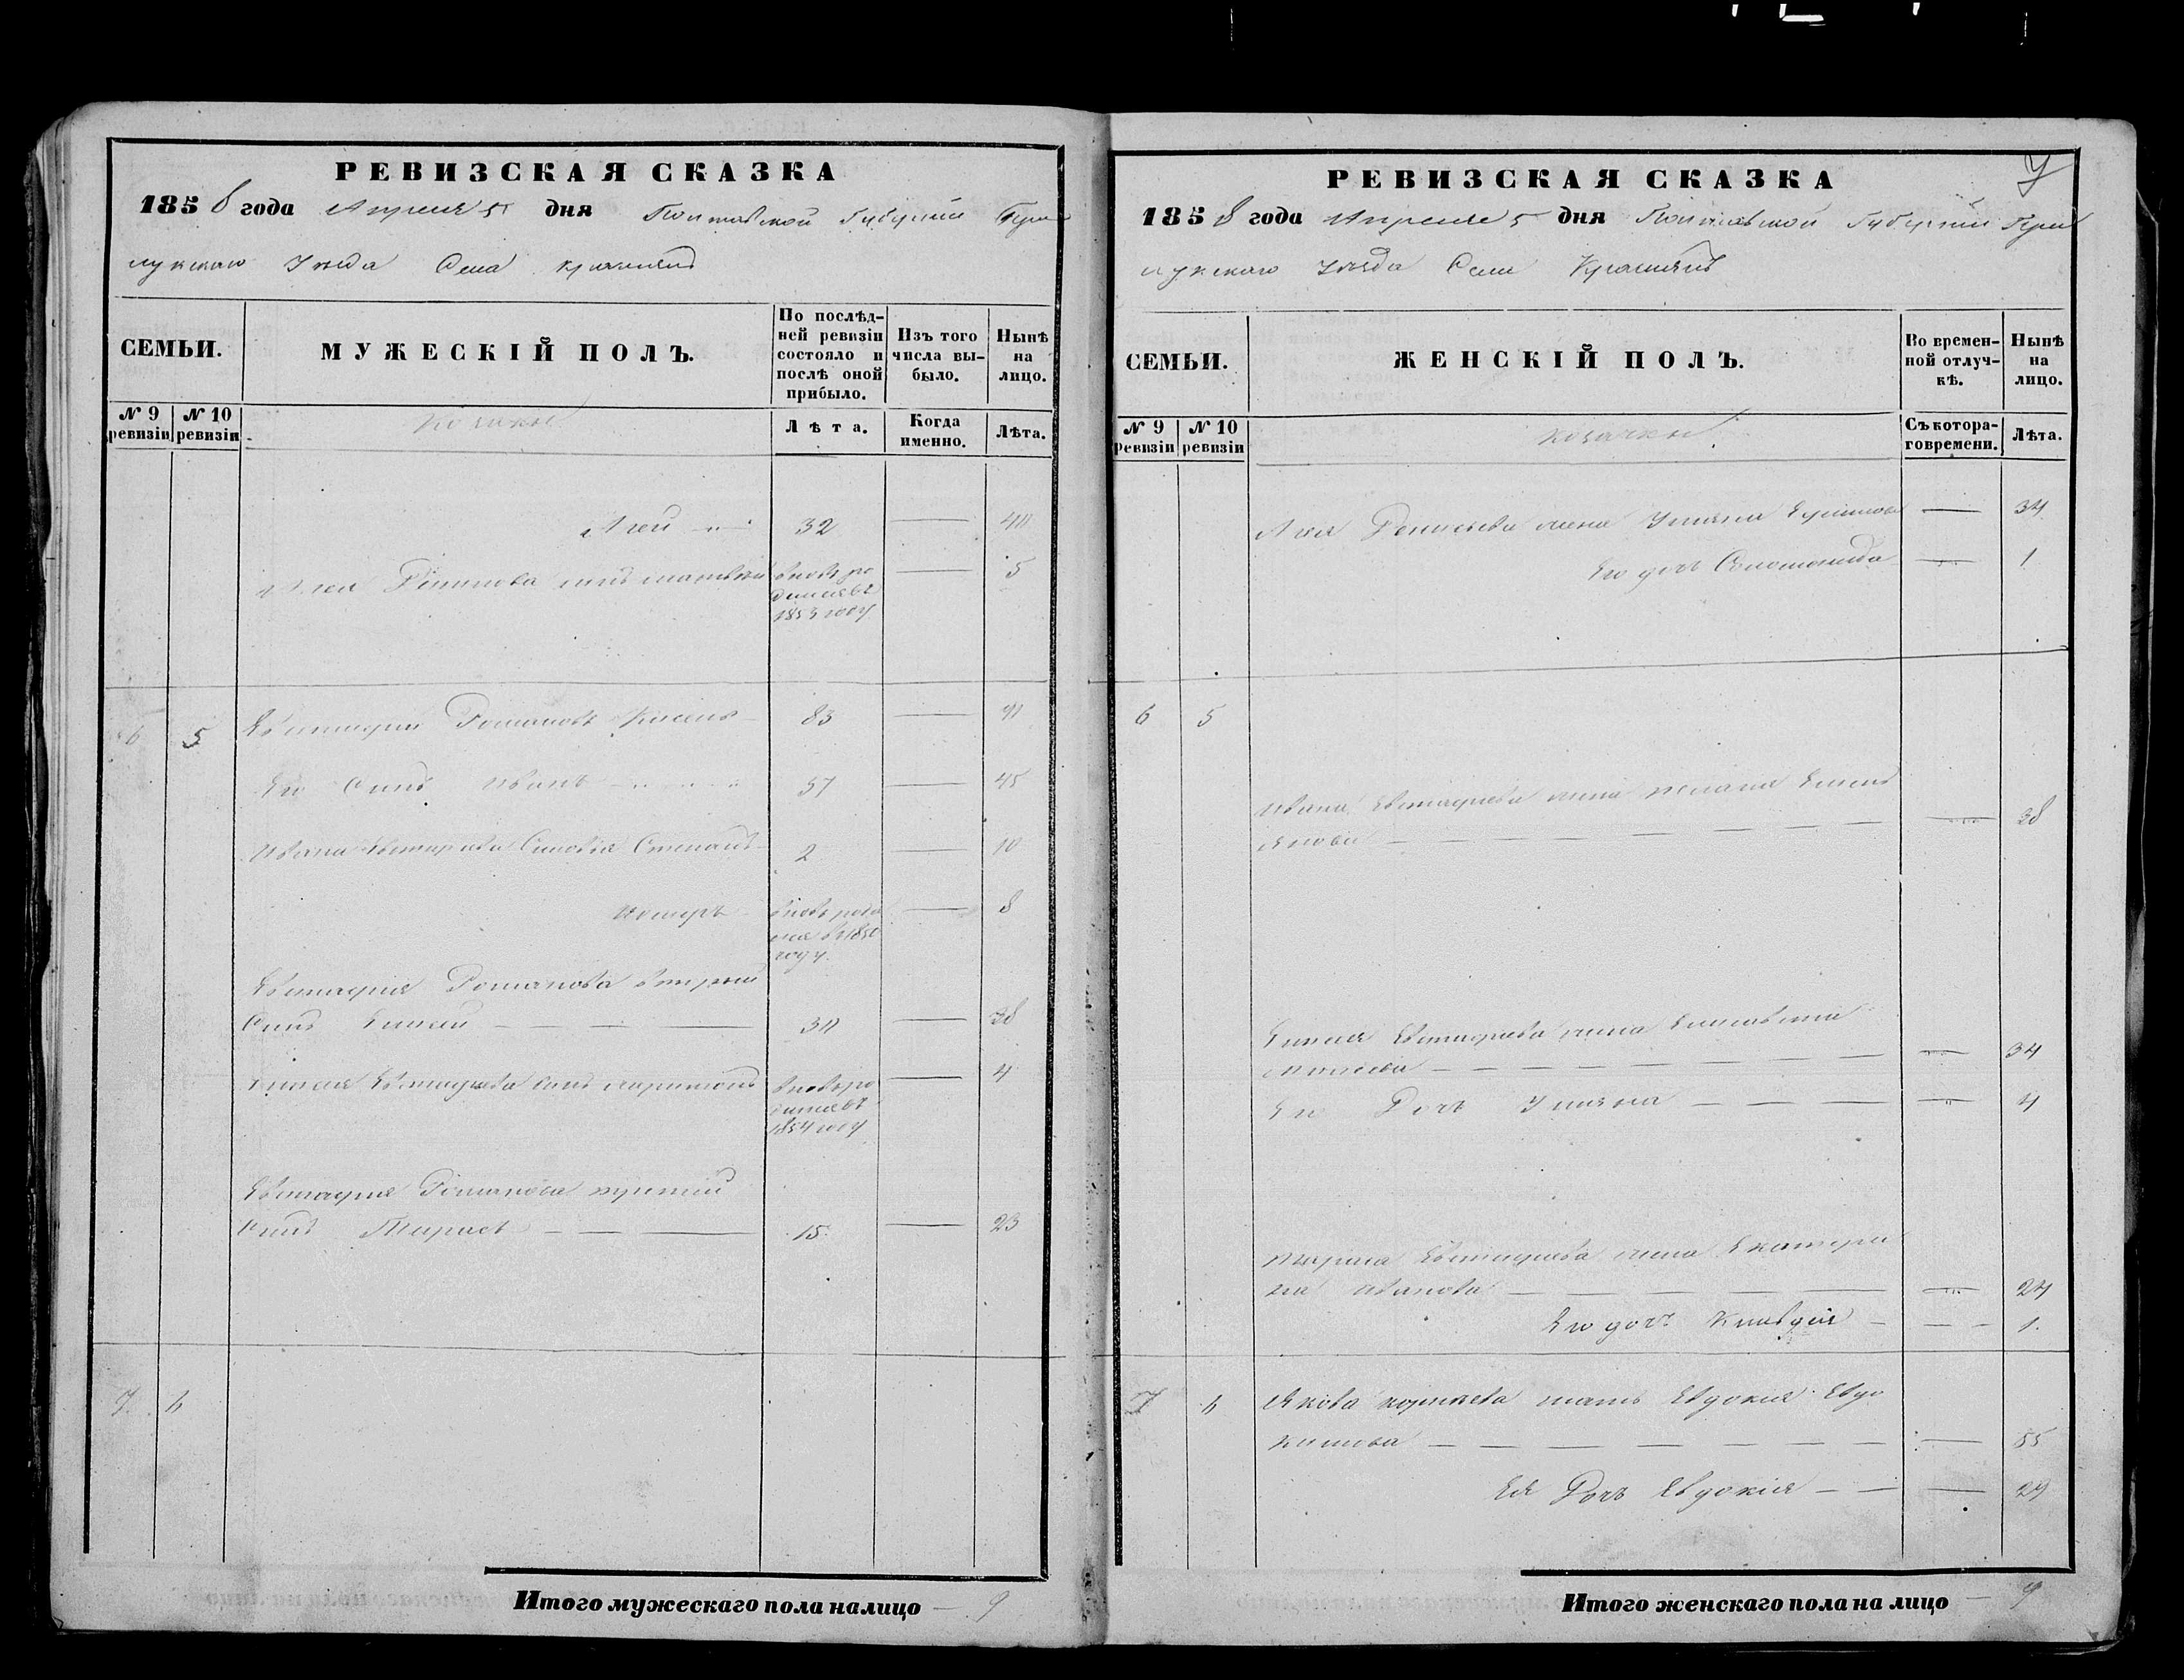 РЕВИЗСКАЯ СКАЗКА
1858 года Апреля 5 дня Полтавской Губерніи При
лукскаго Уезда Села
СЕМЬИ.
МУЖЕСКІЙ ПОЛЪ.
По послѣд-
ней ревизіи
состояло и
послѣ оной
прибыло.
Изъ того
числа вы-
было.
Нынѣ
на
лицо.
№ 9
ревизіи
№ 10
ревизіи
козаки
Лѣта.
Когда
именно.
Лѣта.
32 — 40
сынъ вновь ро — 5
дился въ
1853 году
6 5 Евстафій Романовъ 83 — 91
Его Сынъ Иванъ 37 — 45
Ивана Евстафіева Сыновья Степанъ 2 — 10
вновь роди — 8
лся въ 1850
году.
Евстафія Романова вторый
Сынъ Елисей — 30 — 38
Елисея Евстафіева сынъ вновь ро — 4
дился въ
1854 году
Евстафія Романова третій
Сынъ Тарасъ — 15 — 23
7 6
Итого мужескаго пола налицо — 9
РЕВИЗСКАЯ СКАЗКА
7
1858 года Апреля 5 дня Полтавской Губерніи При
лукскаго Уезда Села
СЕМЬИ.
ЖЕНСКІЙ ПОЛЪ.
Во времен-
ной отлуч-
кѣ.
Нынѣ
на
лицо.
№ 9
Ревизіи
№ 10
ревизіи
козачки
Съ котора-
го времени.
Лѣта.
жена Ульяна — 34
Его дочь Соломонида — 1
6 5
Ивана Евстафіева жена
— 38
Елисея Евстафіева жена Елисавета
— 34
Его Дочь Ульяна — 4
Тараса Евстафіева жена Екатери
на Иванова — 24
Его дочь Клавдія — 1.
7 6 Якова Корнѣева мать Евдокія Евдо
кимова — 55
Ея Дочь Евдокія — 29
Итого женскаго пола на лицо — 9